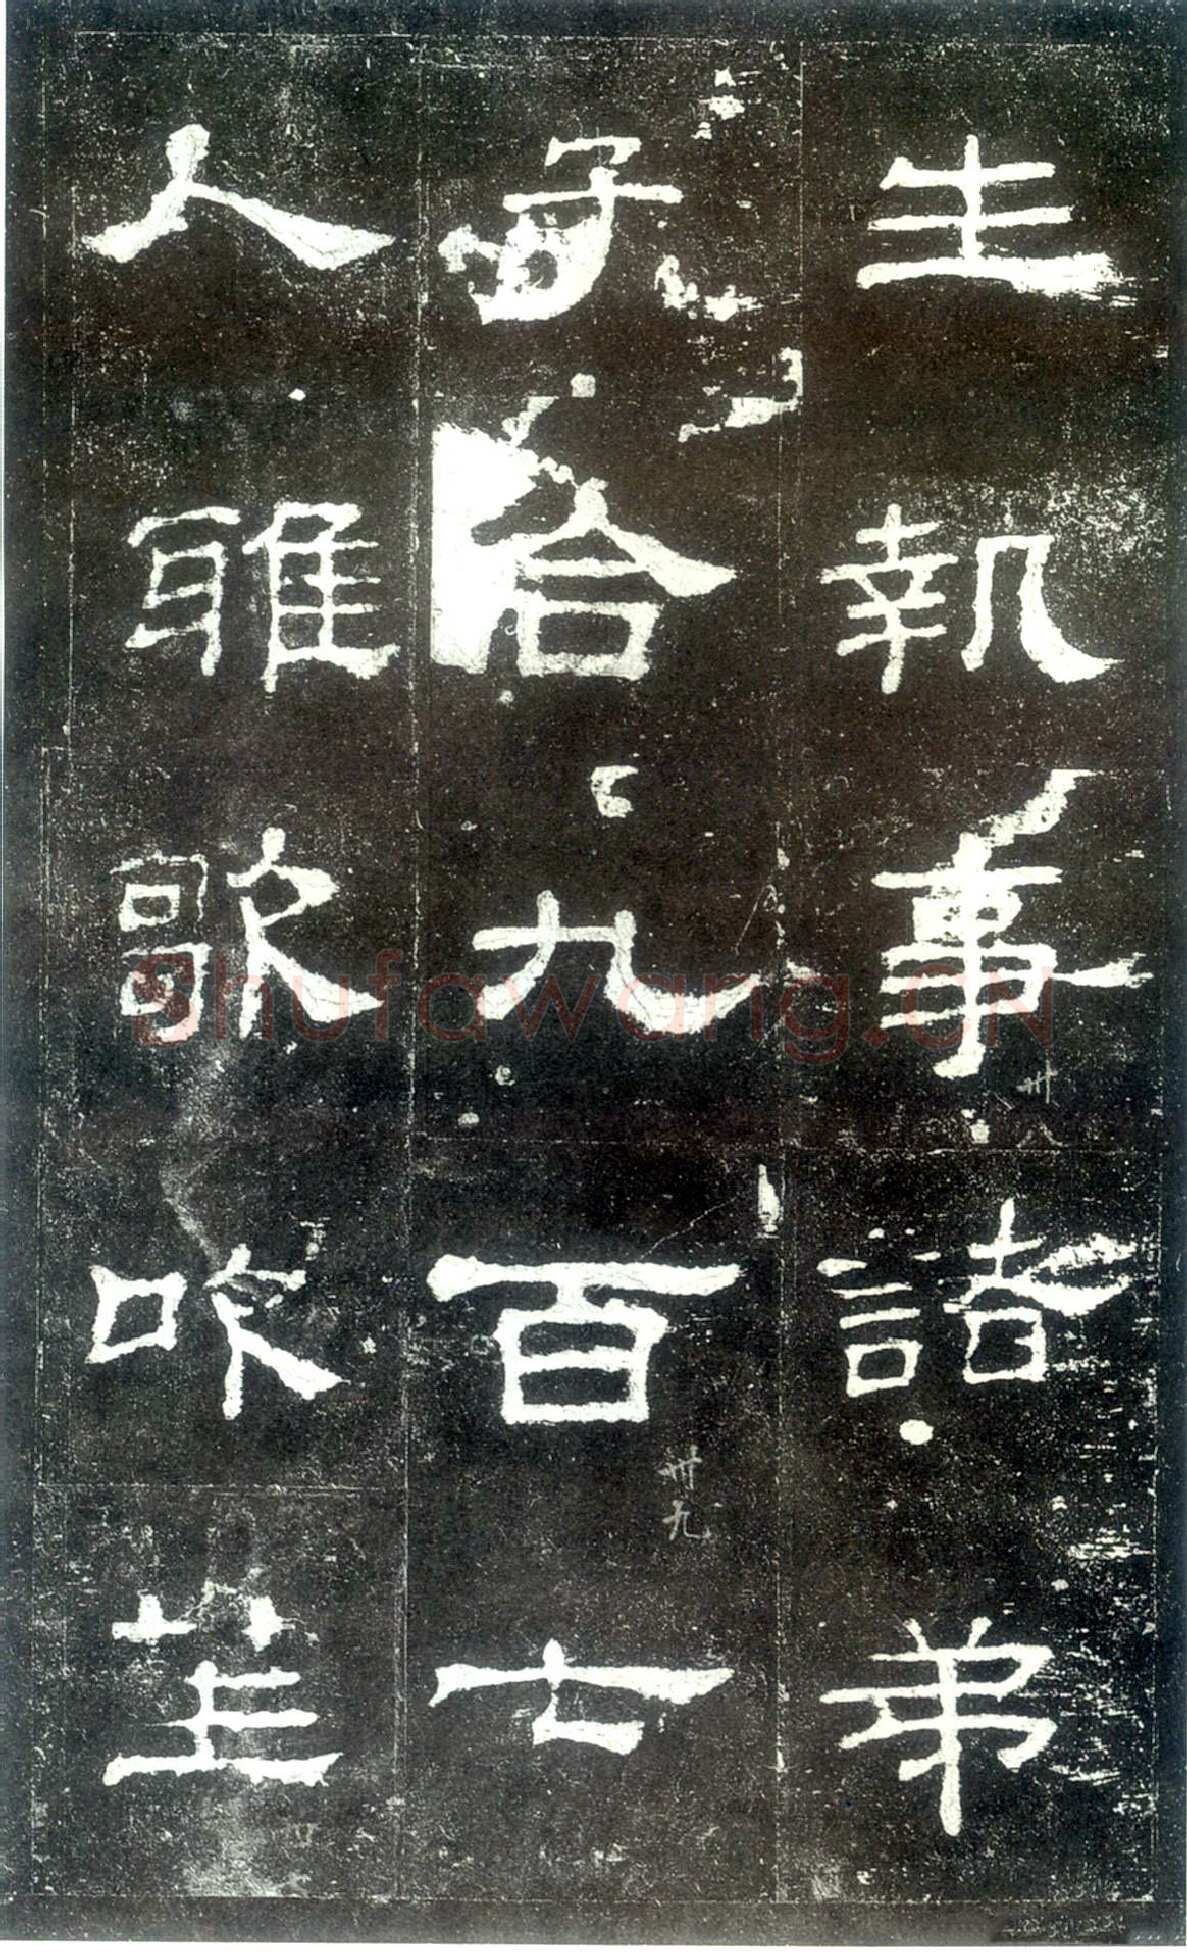 生執事諸弟
子合九百七
人雅歌吹笙
卅八
卅九
Shufawang.CN